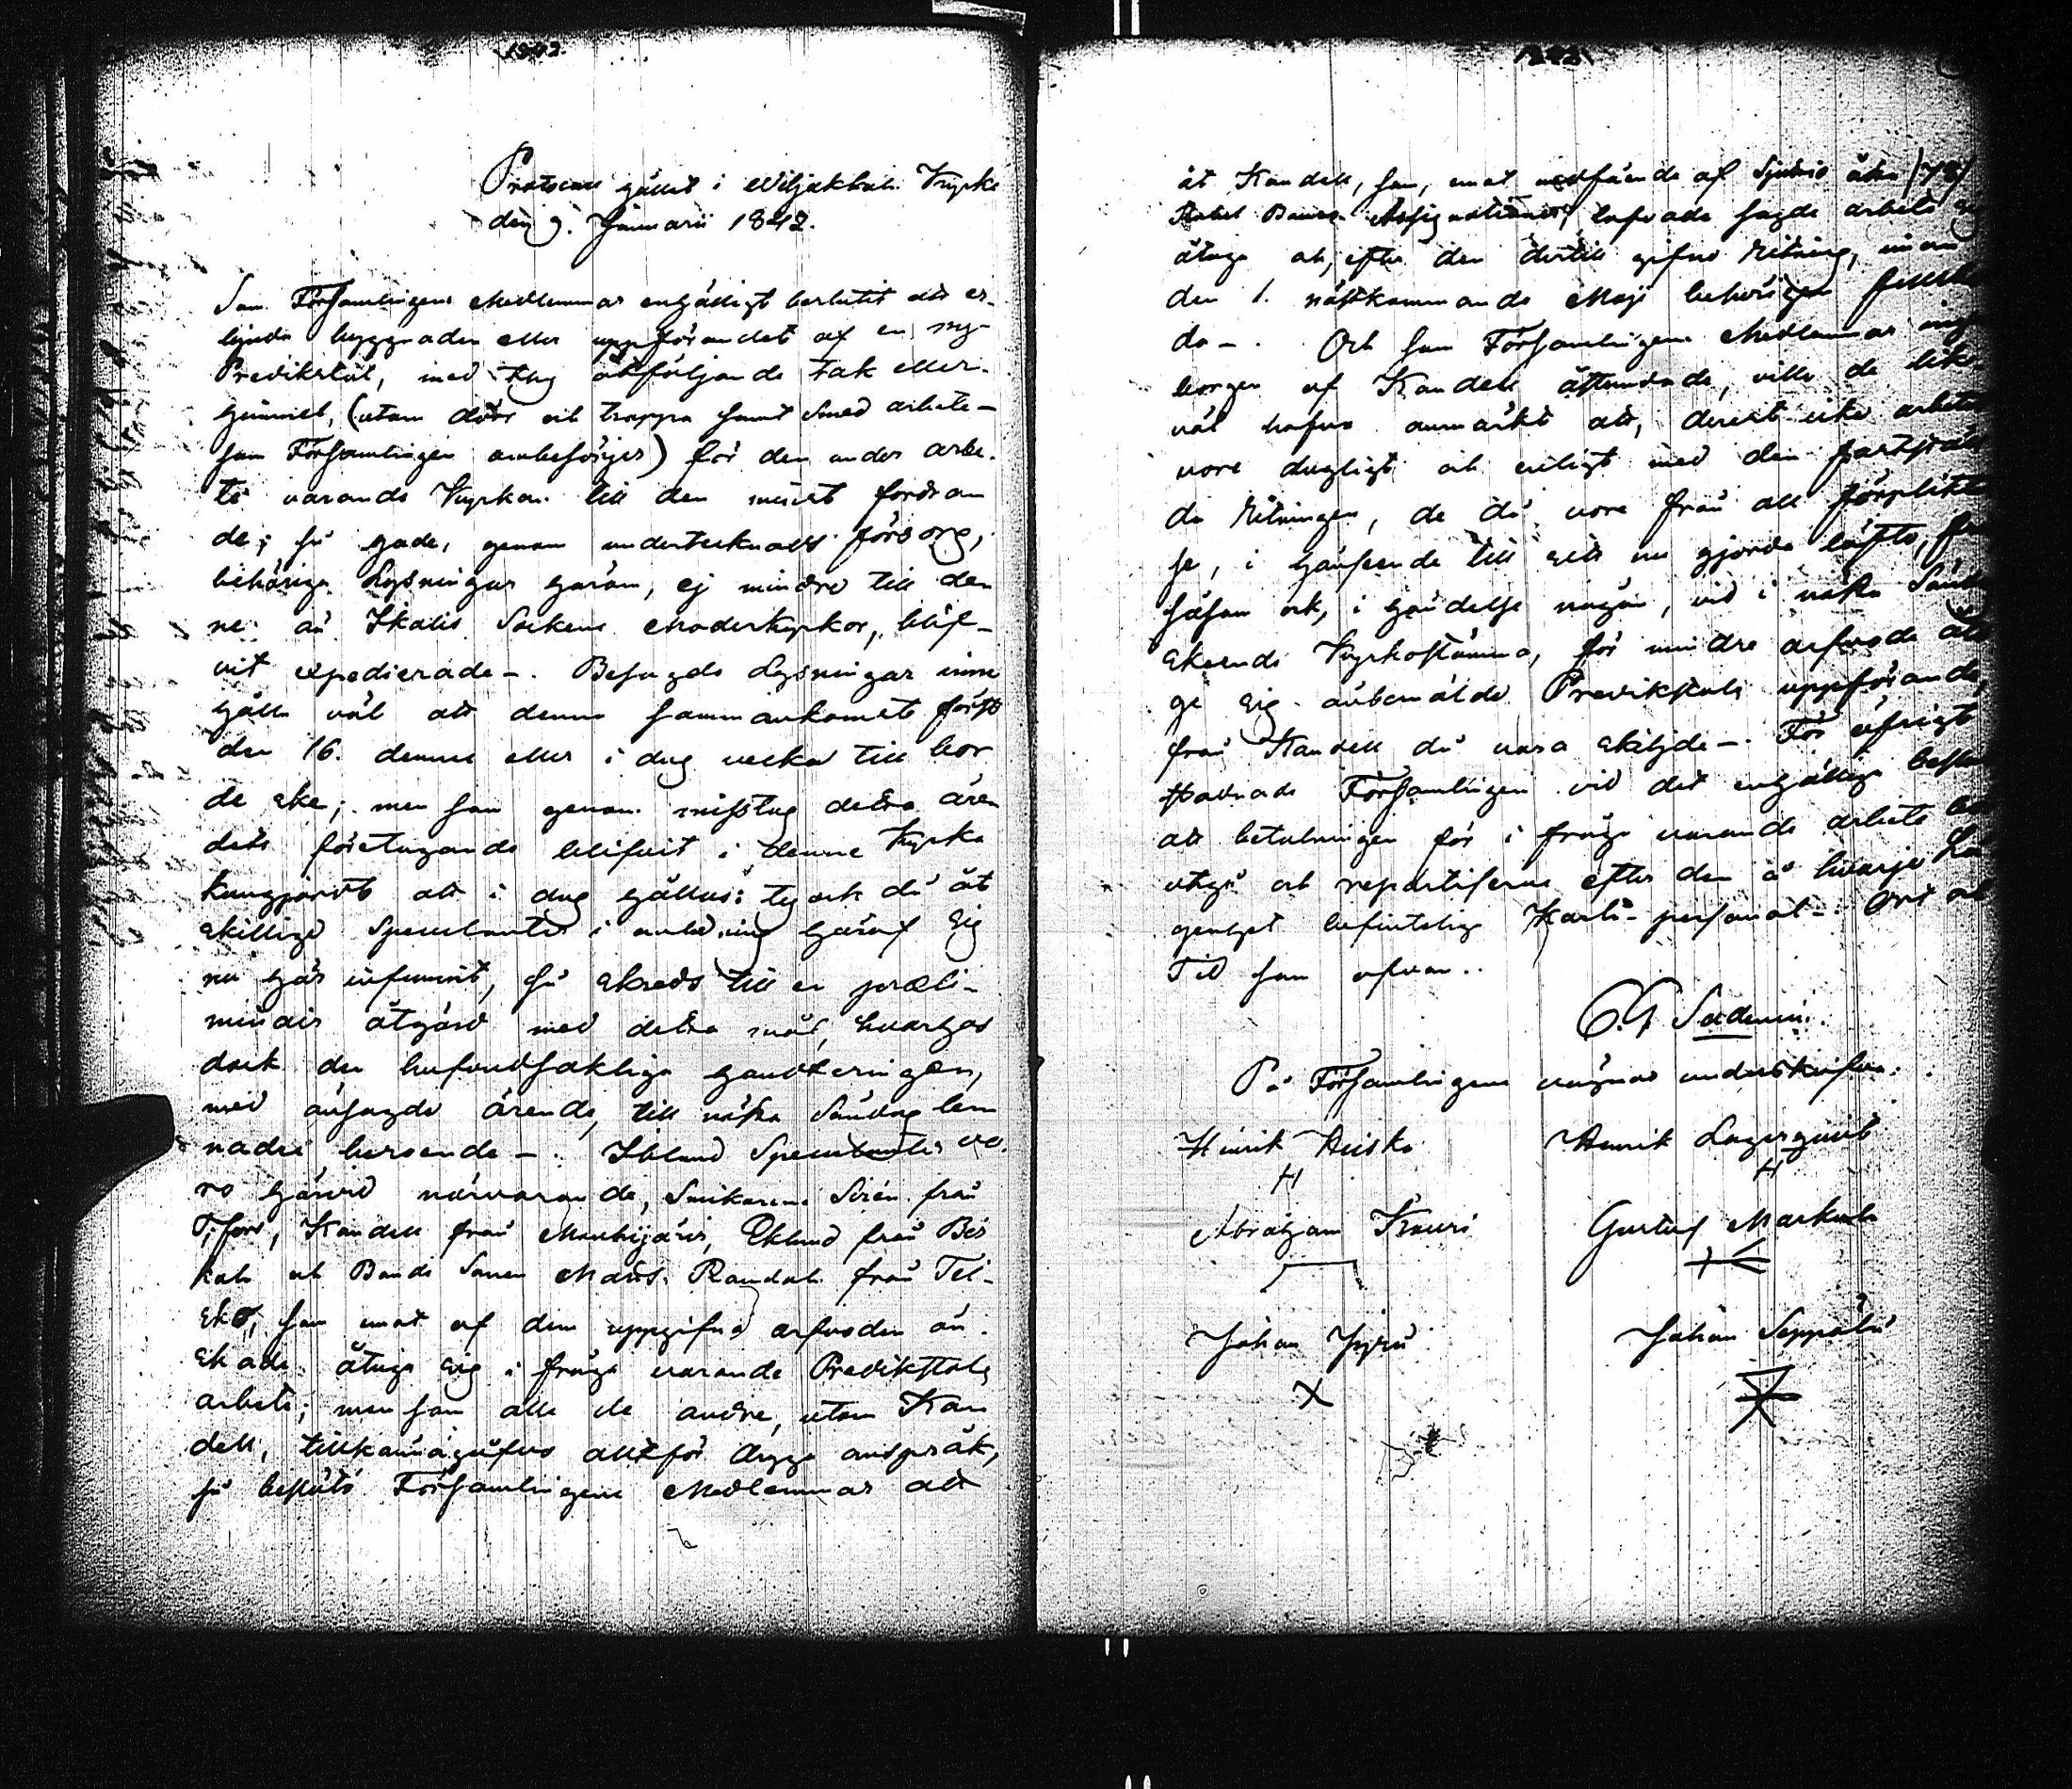 1842.
Protocoll hållet i Wiljakkala Kyrka
den 9. Januarii 1842.
Som Församlingens Medlemmar enhälligt beslutit att er-
bjuda byggnaden eller uppförandet af en ny
Predikstol, med thy åtföljande tak eller
himmel, (utom dörr och trappa samt Smed arbete -
som Församlingen ombesörjer) för den under arbe-
te varande Kyrkan till den minst fordran
de; så hade, genom undertecknads försorg,
behöriga Lysningar härom, ej mindre till den
ne än Ikalis Sockens Moderkyrkor, blif-
vit expedierade -. Besagde Lysningar inne
hålla väl att denna sammankomst först
den 16. dennes eller i dag vecka till bor
de ske; men som genom misstag detta ären
dets företagande blifvit i denne Kyrka
kungjordt att i dag hållas; ty och då åt
skillige Speculanter i anledning häraf sig
nu här infunnit, så skreds till en præli-
minair åtgärd med detta mål, hvarhos
dock den hufvudsakliga handteringen,
med ansagde ärende, till nästa Söndag lem
nades beroende -. Ibland Speculanter vo-
ro härvid närvarande, Snikarene Sirén från
Tifors, Kandell från Mouhijärvi, Eklund från Bis
kola och Bonde Sonen Matts Randala från Tei-
sko, som emot af dem uppgifna arfvoden ön-
skade åtaga sig i fråga varande Predikstols
arbete; men som alla de andra, utom Kan
dell, tillkännagåfvo alltför dryga anspråk,
så beslöto Församlingens Medlemmar att
1842
åt Kandell, som, emot undfående af Sjutio åtta (78)
Rubel Banco Assignationer, lofvade sagde arbete
åtaga och, efter den dertill gifne Ritning, innan
den 1. nästkommande Maji behörigen
da -. Och som Församlingens Medlemmar
borgen af Kandell åstundade, ville de lik-
väl hafva anmärkt att, derest icke arbetet
vore dugligt och enligt med den
de Ritningen, de då vore från all
se, i hänseende till sitt nu gjorda löfte,
såsom ock, i händelse någon, vid i nästa
skeende Kyrkostämma, för mindre arfvode
ge sig ånbemälde Predikstols uppförande,
från Kandell då vara skiljde -. För öfrigt
stadnade Församlingen vid det enhälliga
att betalningen för i fråga varande arbete
utgå och repartiseras efter den å hvarje
genhet befintelig Karls-personal -. Ort och
Tid som ofvan.
På Församlingens vägnar underskrifva:
Hinrik Heiska Henrik Lagerqvist
Abraham Kauri Gustaf Markula
Johan Jyrä Johan Seppälä